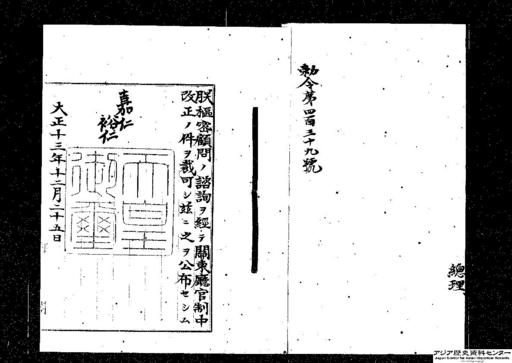 勅令第四百三十九號
總理
朕樞密顧問ノ諮詢ヲ經テ關東廳官制中
改正ノ件ヲ裁可シ茲ニ之ヲ公布セシム
嘉仁
裕仁
天皇
御璽
大正十三年十二月二十五日
アジア歴史資料センター
Japan Center for Asian Historical Records